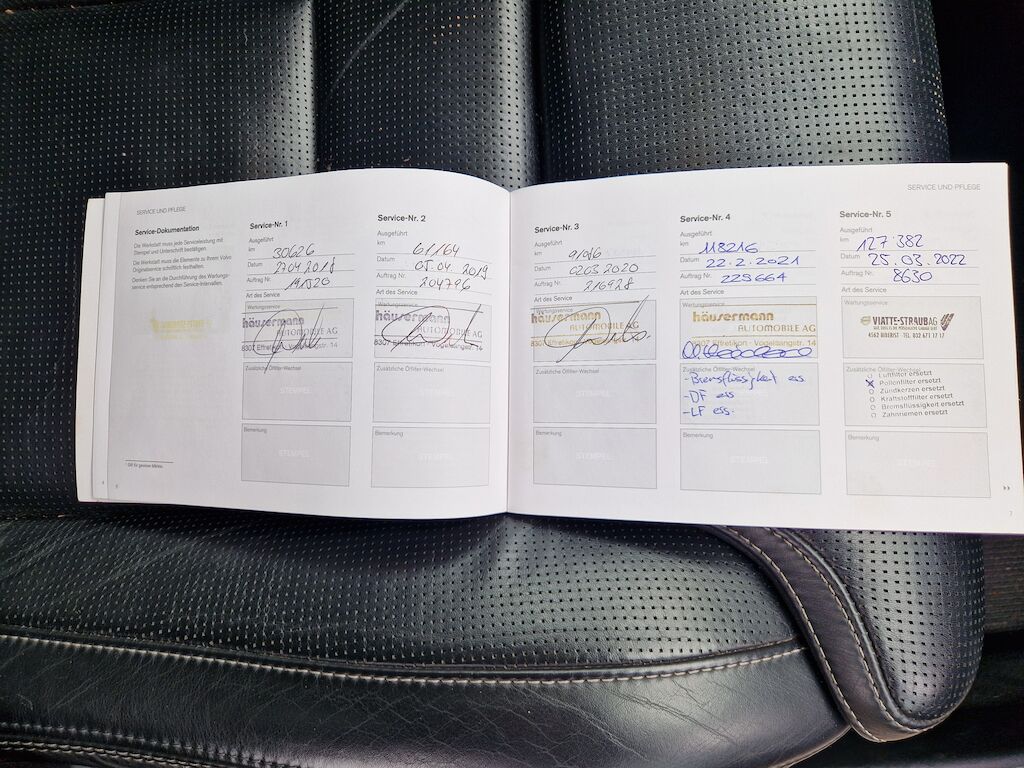 SERVICE UND PFLEGE
Service-Dokumentation
Die Werkstatt muss jede Serviceleistung mit
Stempel und Unterschrift bestätigen.
Die Werkstatt muss die Elemente zu Ihrem Volvo
Originalservice schriftlich festhalten.
Denken Sie an die Durchführung des Wartungs-
service entsprechend den Service-Intervallen.
Service-Nr. 1
Ausgeführt
km 30626
Datum 27.04 2018
Auftrag Nr. 191520
Art des Service
Wartungsservice
häusermann
AUTOMOBILE AG
8307 Effretikon · Vogelsangstr. 14
Zusätzliche Ölfilter-Wechsel
STEMPEL
Bemerkung
STEMPEL
Service-Nr. 2
Ausgeführt
km 61164
Datum 05.04.2019
Auftrag Nr. 204796
Art des Service
Wartungsservice
häusermann
AUTOMOBILE AG
8307 Effretikon · Vogelsangstr. 14
Zusätzliche Ölfilter-Wechsel
Bemerkung
Service-Nr. 3
Ausgeführt
km 91086
Datum 02.03 2020
Auftrag Nr. 216928
Art des Service
häusermann
AUTOMOBILE AG
8307 Effretikon · Vogelsangstr. 14
Zusätzliche Ölfilter-Wechsel
Bemerkung
Service-Nr. 4
Ausgeführt
km 118216
Datum 22.2.2021
Auftrag Nr. 225664
Art des Service
Wartungsservice
häusermann
AUTOMOBILE AG
8307 Effretikon · Vogelsangstr. 14
Zusätzliche Ölfilter-Wechsel
- Bremsflüssigkeit ers.
- DF ers
- LF ers.
Bemerkung
STEMPEL
SERVICE UND PFLEGE
Service-Nr. 5
Ausgeführt
km 127'382
Datum 25.03.2022
Auftrag Nr. 8630
Art des Service
Wartungsservice
VIATTE-STRAUB AG
4562 BIBERIST - TEL. 032 671 17 17
Zusätzliche Ölfilter-Wechsel
O Luftfilter ersetzt
X Pollenfilter ersetzt
O Zündkerzen ersetzt
O Kraftstofffilter ersetzt
O Bremsflüssigkeit ersetzt
O Zahnriemen ersetzt
Bemerkung
STEMPEL
7